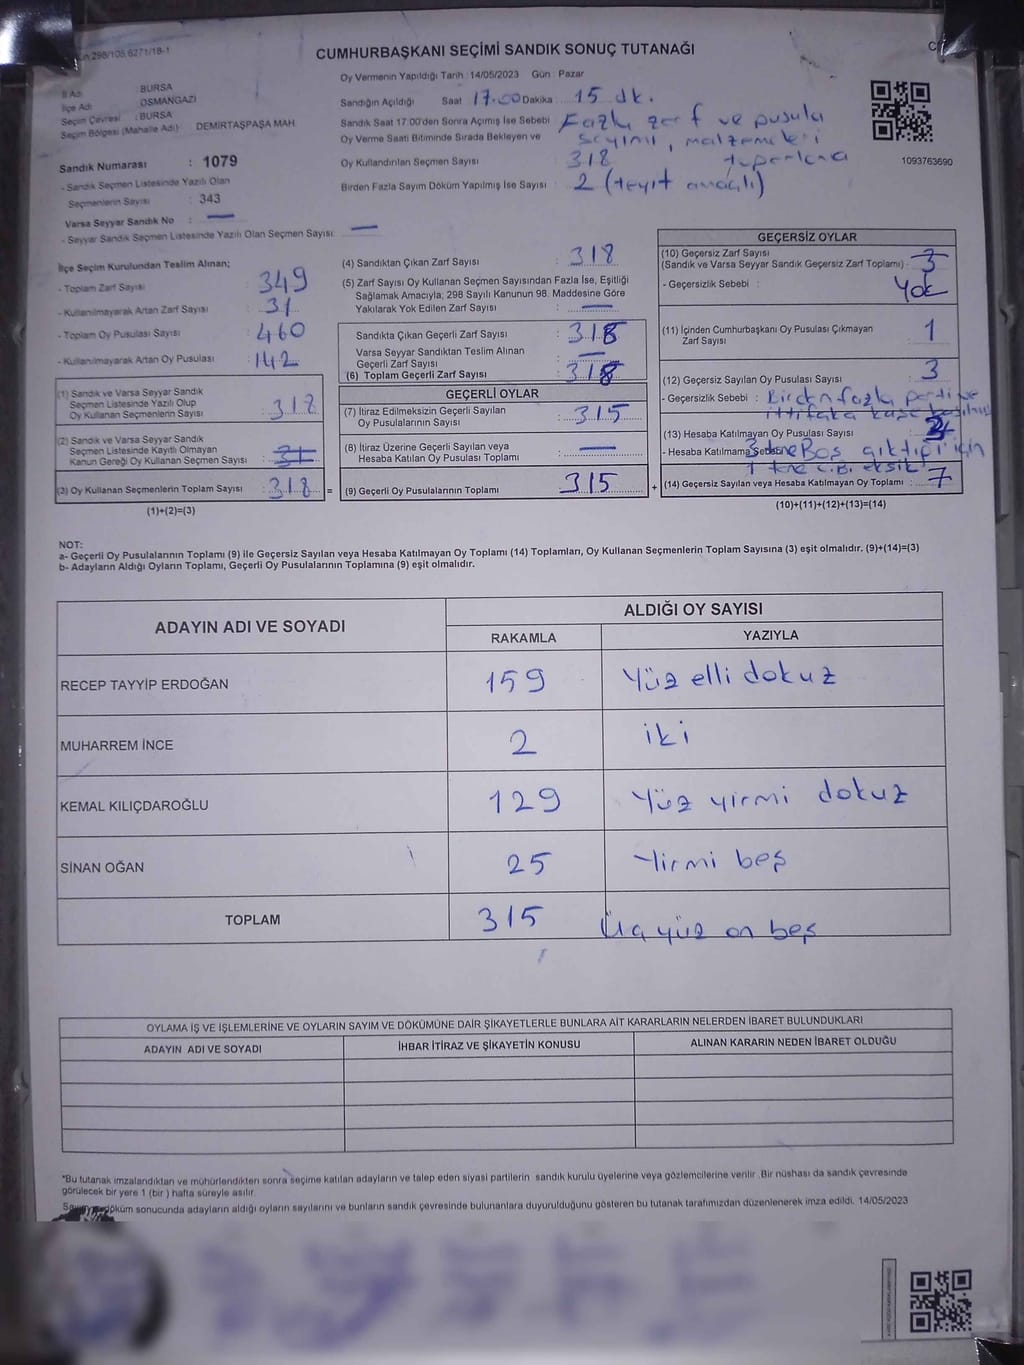 CUMHURBAŞKANI SEÇİMİ SANDIK SONUÇ TUTANAĞI
Oy Vermenin Yapıldığı Tarih : 14/05/2023 Gün : Pazar
İl Adı : BURSA
İlçe Adı : OSMANGAZİ
Seçim Çevresi : BURSA
Seçim Bölgesi (Mahalle Adı) : DEMİRTAŞPAŞA MAH
Sandık Numarası : 1079
- Sandık Seçmen Listesinde Yazılı Olan
Seçmenlerin Sayısı : 343
Varsa Seyyar Sandık No : —
- Seyyar Sandık Seçmen Listesinde Yazılı Olan Seçmen Sayısı: —
Sandığın Açıldığı Saat 17.00 Dakika 15 dk.
Sandık Saat 17.00'den Sonra Açımış İse Sebebi : Fazla zarf ve pusula
Oy Verme Saati Bitiminde Sırada Bekleyen ve sayımı, malzemeleri
Oy Kullandırılan Seçmen Sayısı : 318 toparlama
Birden Fazla Sayım Döküm Yapılmış İse Sayısı : 2 (teyit amaçlı)
1093763690
İlçe Seçim Kurulundan Teslim Alınan;
- Toplam Zarf Sayısı : 349
- Kullanılmayarak Artan Zarf Sayısı : 31
- Toplam Oy Pusulası Sayısı : 460
- Kullanılmayarak Artan Oy Pusulası : 142
(1) Sandık ve Varsa Seyyar Sandık
Seçmen Listesinde Yazılı Olup
Oy Kullanan Seçmenlerin Sayısı : 318
(2) Sandık ve Varsa Seyyar Sandık
Seçmen Listesinde Kayıtlı Olmayan
Kanun Gereği Oy Kullanan Seçmen Sayısı :
(3) Oy Kullanan Seçmenlerin Toplam Sayısı : 318 =
(1)+(2)=(3)
(4) Sandıktan Çıkan Zarf Sayısı : 318
(5) Zarf Sayısı Oy Kullanan Seçmen Sayısından Fazla İse, Eşitliği
Sağlamak Amacıyla; 298 Sayılı Kanunun 98. Maddesine Göre
Yakılarak Yok Edilen Zarf Sayısı : —
Sandıkta Çıkan Geçerli Zarf Sayısı : 318
Varsa Seyyar Sandıktan Teslim Alınan
Geçerli Zarf Sayısı : —
(6) Toplam Geçerli Zarf Sayısı : 318
GEÇERLİ OYLAR
(7) İtiraz Edilmeksizin Geçerli Sayılan
Oy Pusulalarının Sayısı : 315
(8) İtiraz Üzerine Geçerli Sayılan veya
Hesaba Katılan Oy Pusulası Toplamı : —
(9) Geçerli Oy Pusulalarının Toplamı : 315 +
GEÇERSİZ OYLAR
(10) Geçersiz Zarf Sayısı
(Sandık ve Varsa Seyyar Sandık Geçersiz Zarf Toplamı) : 3
- Geçersizlik Sebebi : Yok
(11) İçinden Cumhurbaşkanı Oy Pusulası Çıkmayan
Zarf Sayısı : 1
(12) Geçersiz Sayılan Oy Pusulası Sayısı : 3
- Geçersizlik Sebebi : Birden fazla parti ve
ittifaka kaşe basılmış
(13) Hesaba Katılmayan Oy Pusulası Sayısı :
- Hesaba Katılmama Sebebi 3 tane Boş çıktığı için
1 tane C.B. eksik
(14) Geçersiz Sayılan veya Hesaba Katılmayan Oy Toplamı : 7
(10)+(11)+(12)+(13)=(14)
NOT:
a- Geçerli Oy Pusulalarının Toplamı (9) ile Geçersiz Sayılan veya Hesaba Katılmayan Oy Toplamı (14) Toplamları, Oy Kullanan Seçmenlerin Toplam Sayısına (3) eşit olmalıdır. (9)+(14)=(3)
b- Adayların Aldığı Oyların Toplamı, Geçerli Oy Pusulalarının Toplamına (9) eşit olmalıdır.
ADAYIN ADI VE SOYADI ALDIĞI OY SAYISI
RAKAMLA YAZIYLA
RECEP TAYYİP ERDOĞAN 159 Yüz elli dokuz
MUHARREM İNCE 2 iki
KEMAL KILIÇDAROĞLU 129 Yüz yirmi dokuz
SİNAN OĞAN 25 Yirmi beş
TOPLAM 315 Üç yüz on beş
OYLAMA İŞ VE İŞLEMLERİNE VE OYLARIN SAYIM VE DÖKÜMÜNE DAİR ŞİKAYETLERLE BUNLARA AİT KARARLARIN NELERDEN İBARET BULUNDUKLARI
ADAYIN ADI VE SOYADI İHBAR İTİRAZ VE ŞİKAYETİN KONUSU ALINAN KARARIN NEDEN İBARET OLDUĞU
*Bu tutanak imzalandıktan ve mühürlendikten sonra seçime katılan adayların ve talep eden siyasi partilerin sandık kurulu üyelerine veya gözlemcilerine verilir. Bir nüshası da sandık çevresinde
görülecek bir yere 1 (bir) hafta süreyle asılır.
döküm sonucunda adayların aldığı oyların sayılarını ve bunların sandık çevresinde bulunanlara duyurulduğunu gösteren bu tutanak tarafımızdan düzenlenerek imza edildi. 14/05/2023